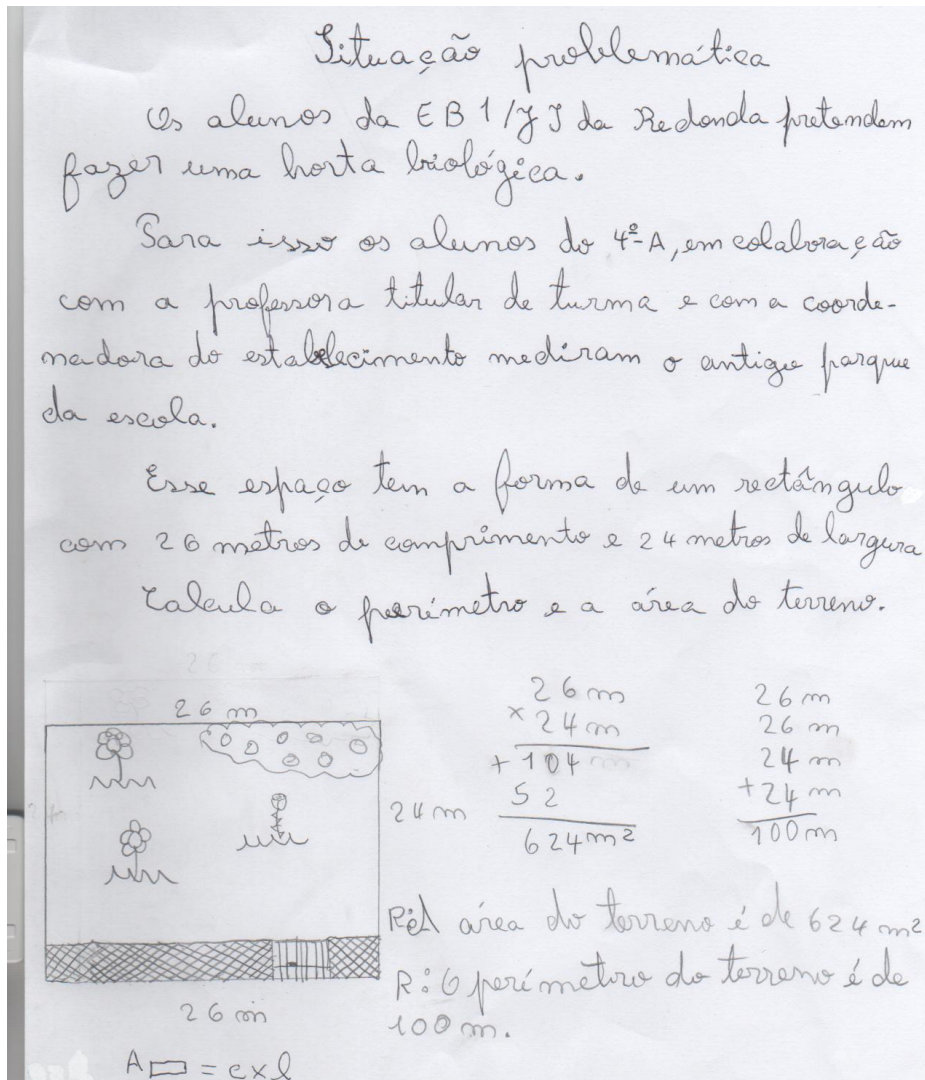 Situação problemática
Os alunos da EB 1/JI da Redonda pretendem
fazer uma horta biológica.
Para isso os alunos do 4º-A, em colaboração
com a professora titular de turma e com a coorde-
nadora do estabelecimento mediram o antigo parque
da escola.
Esse espaço tem a forma de um rectângulo
com 26 metros de comprimento e 24 metros de largura
Calcula o perímetro e a área do terreno.
26
26 m
24 m
26 m
26 m
× 24 m
+ 104 m
52
624 m²
26 m
26 m
24 m
+ 24 m
100 m
R: A área do terreno é de 624 m²
R: O perímetro do terreno é de
100 m.
A▭ = c x l